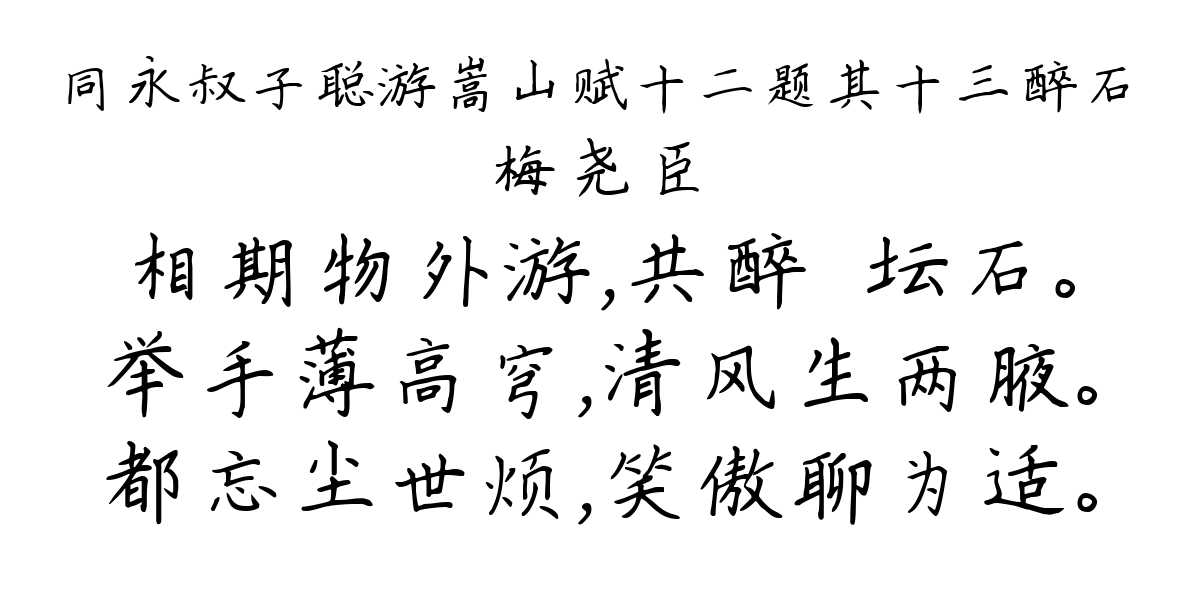 同永叔子聪游嵩山赋十二题其十三醉石
梅尧臣
相期物外游,共醉 坛石。
举手薄高穹,清风生两腋。
都忘尘世烦,笑傲聊为适。